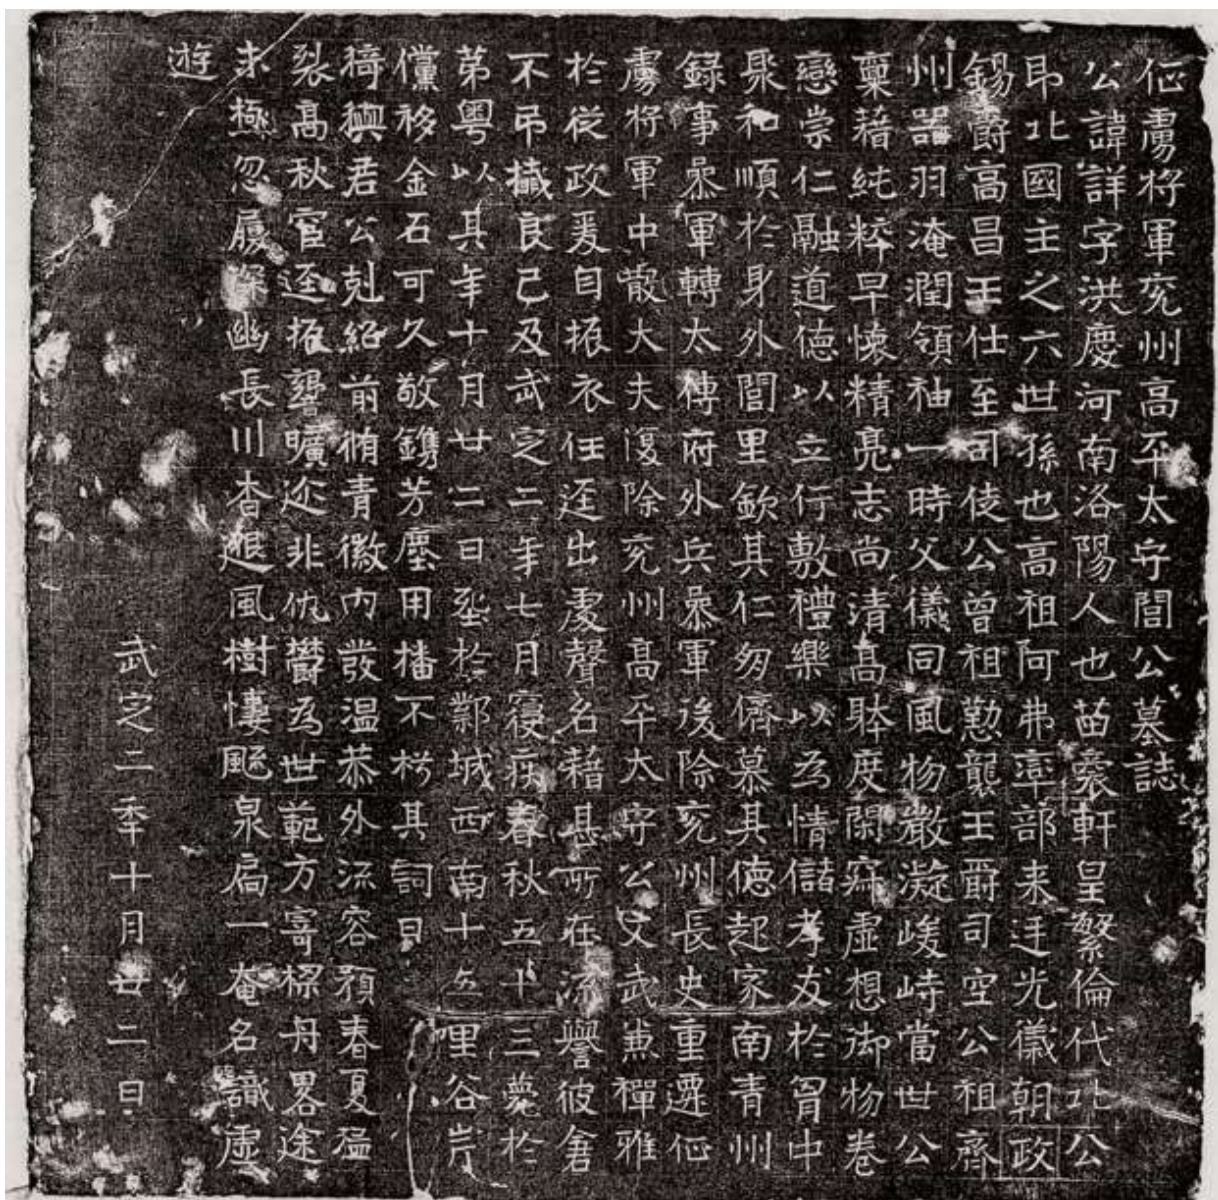 征虜將軍兗州高平太守閭公墓誌
公諱詳字洪慶河南洛陽人也苗裔軒皇繁倫代北公
即北國主之六世孫也高祖阿弗率部来迋光儀朝政
錫爵高昌王仕至司徒公曾祖懃襲王爵司空公祖齊
州器羽淹潤領袖一時父儀同風物嚴凝峻峙當世公
稟藉純粹早懷精亮志尚清高體度閑寂虛想御物卷
戀崇仁融道德以立行敷禮樂以為情儲孝友於胷中
聚和順於身外閭里欽其仁匆儕慕其德起家南青州
錄事叅軍轉太傅府外兵叅軍後除兗州長史重遷征
虜將軍中散大夫復除兗州高平太守公文武兼禪雅
於從政爰自振衣任迋出處聲名藉甚所在流譽彼倉
不弔殲良已及武定二年七月寢疾春秋五十三薨於
第粵以其年十月廿二日葬於鄴城西南十五里谷岸
儻移金石可久敬鐫芳塵用播不朽其詞曰
猗歟君公剋紹前脩青徽內發温恭外流容預春夏猛
裂高秋官迋振響曠迩非仇鬱為世範方寄樑舟畧途
未極忽履深幽長川杳邈風樹悽颸泉扃一奄名識虛
遊
武定二季十月廿二日